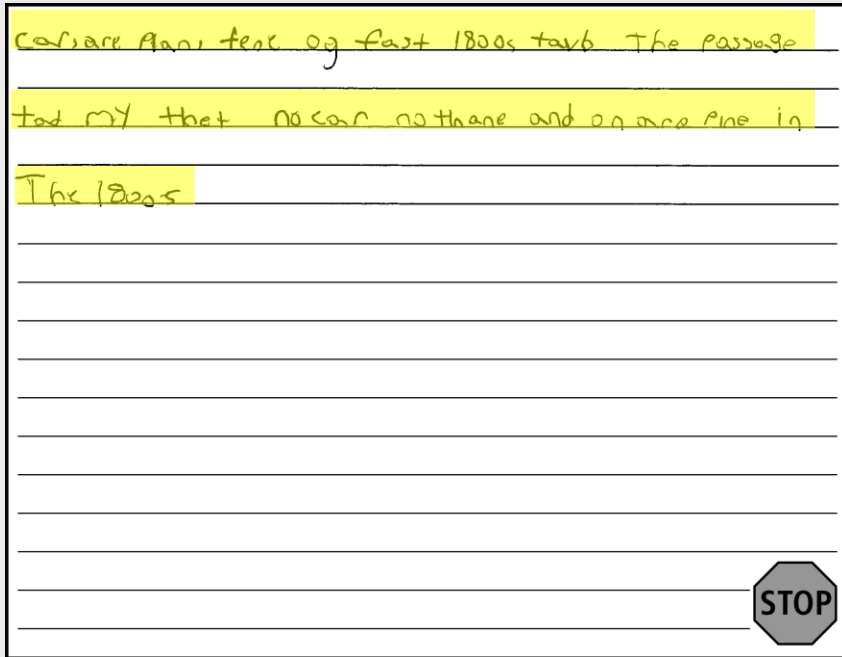 cars are Plans teXe og fast 1800s tavb The Passage
tod my thet no car no thane and on are Pne in
The 1800s
STOP